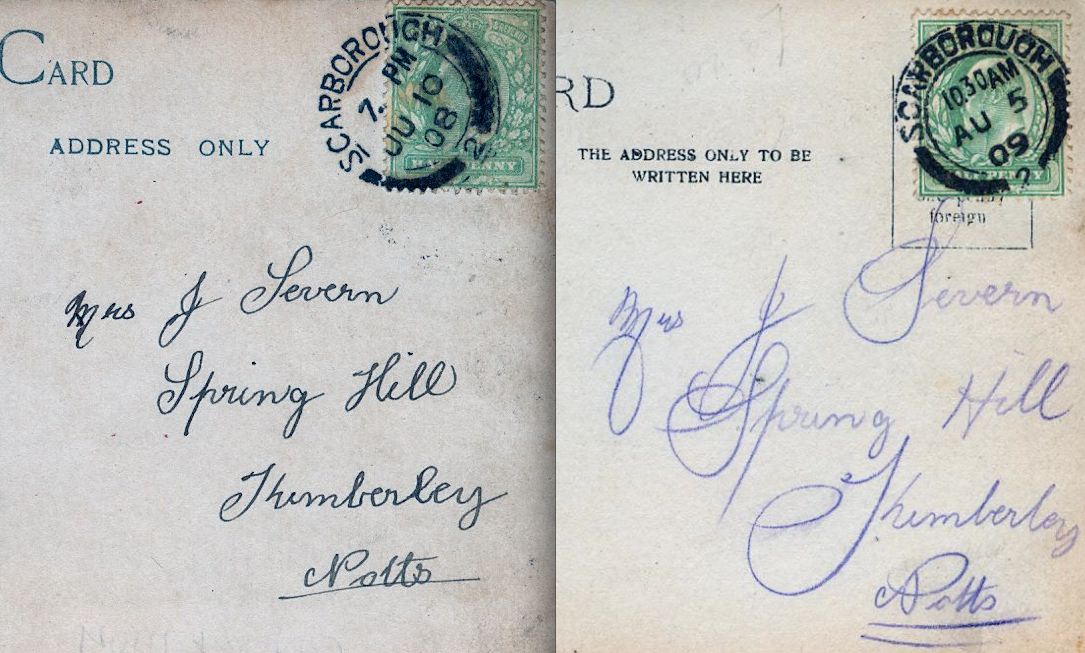 CARD
ADDRESS ONLY
SCARBOROUGH
7. PM
JU 10
08
2
HALFPENNY
Mrs J Severn
Spring Hill
Kimberley
Notts
RD
THE ADDRESS ONLY TO BE
WRITTEN HERE
SCARBOROUGH
10.30AM
AU 5
09
2
foreign
Mrs J Severn
Spring Hill
Kimberley
Notts